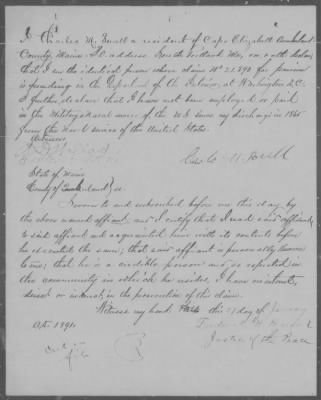 I Charles M. a resident of Cape Elizabeth Cumberland
County, Maine P.O. address South Portland Me, on oath declare
that I am the identical person whose claim No for pension
is pending in the Department of the Interior, at Washington D.C.
I further declare that I have not been employed or paid
in the Military or Naval service of the U.S. since my discharge in 1865
from the Naval service of the United States.
Witness
Chas M.
State of Maine
County of Cumberland } ss
Sworn to and subscribed before me this day by
the above named affiant, and I certify that I read said affidavit
to said affiant and acquainted him with its contents before
he executed the same; that said affiant is personally known
to me; that he is a credible person and so reputed in
the community in which he resides, I have no interest,
direct or indirect in the prosecution of this claim.
Witness my hand this 27 day of January
1891.
Justice of the Peace